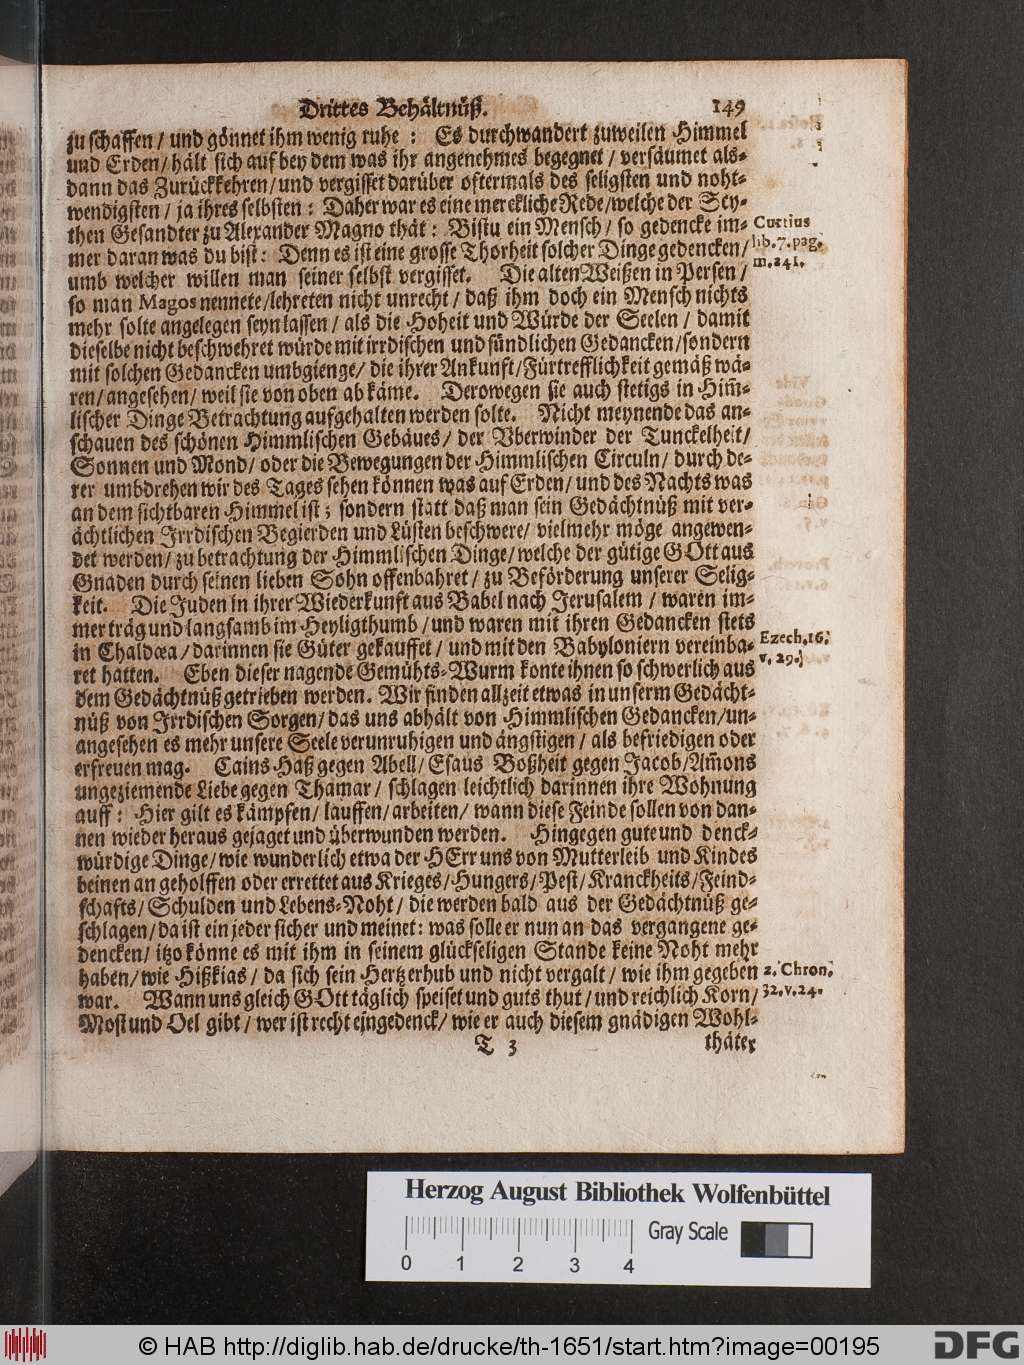 Drittes Behältnüß. 149
zu schaffen / und gönnet ihm wenig ruhe : Es durchwandert zuweilen Himmel
und Erden / hält sich auf bey dem was ihr angenehmes begegnet / versäumet als-
dann das Zurückkehren / und vergisset darüber oftermals des seligsten und noht-
wendigsten / ja ihres selbsten : Daher war es eine merckliche Rede / welche der Scy-
then Gesandter zu Alexander Magno thät : Bistu ein Mensch / so gedencke im-
Curtius
mer daran was du bist : Denn es ist eine grosse Thorheit solcher Dinge gedencken /
lib. 7. pag.
umb welcher willen man seiner selbst vergisset. Die alten Weißen in Persen /
m. 241.
so man Magos nennete / lehreten nicht unrecht / daß ihm doch ein Mensch nichts
mehr solte angelegen seyn lassen / als die Hoheit und Würde der Seelen / damit
dieselbe nicht beschwehret würde mit irrdischen und sündlichen Gedancken / sondern
mit solchen Gedancken umbgienge / die ihrer Ankunft / Fürtrefflichkeit gemäß wä-
ren / angesehen / weil sie von oben ab käme. Derowegen sie auch stetigs in Him̃-
lischer Dinge Betrachtung aufgehalten werden solte. Nicht meynende das an-
schauen des schönen Himmlischen Gebäues / der Vberwinder der Tunckelheit /
Sonnen und Mond / oder die Bewegungen der Himmlischen Circuln / durch de-
rer umbdrehen wir des Tages sehen können was auf Erden / und des Nachts was
an dem sichtbaren Himmel ist ; sondern statt daß man sein Gedächtnüß mit ver-
ächtlichen Irrdischen Begierden und Lüsten beschwere / vielmehr möge angewen-
det werden / zu betrachtung der Himmlischen Dinge / welche der gütige GOtt aus
Gnaden durch seinen lieben Sohn offenbahret / zu Beförderung unserer Selig-
keit. Die Juden in ihrer Wiederkunft aus Babel nach Jerusalem / waren im-
mer träg und langsamb im Heyligthumb / und waren mit ihren Gedancken stets
in Chaldœa / darinnen sie Güter gekauffet / und mit den Babyloniern vereinba-
Ezech. 16.
ret hatten. Eben dieser nagende Gemühts-Wurm konte ihnen so schwerlich aus
v. 29.
dem Gedächtnüß getrieben werden. Wir finden allzeit etwas in unserm Gedächt-
nüß von Irrdischen Sorgen / das uns abhält von Himmlischen Gedancken / un-
angesehen es mehr unsere Seele verunruhigen und ängstigen / als befriedigen oder
erfreuen mag. Cains Haß gegen Abell / Esaus Boßheit gegen Jacob / Am̃ons
ungeziemende Liebe gegen Thamar / schlagen leichtlich darinnen ihre Wohnung
auff : Hier gilt es kämpfen / lauffen / arbeiten / wann diese Feinde sollen von dan-
nen wieder heraus gejaget und überwunden werden. Hingegen gute und denck-
würdige Dinge / wie wunderlich etwa der HErr uns von Mutterleib und Kindes
beinen an geholffen oder errettet aus Krieges / Hungers / Pest / Kranckheits / Feind-
schafts / Schulden und Lebens-Noht / die werden bald aus der Gedächtnüß ge-
schlagen / da ist ein jeder sicher und meinet : was solle er nun an das vergangene ge-
dencken / itzo könne es mit ihm in seinem glückseligen Stande keine Noht mehr
haben / wie Hißkias / da sich sein Hertz erhub und nicht vergalt / wie ihm gegeben
2. Chron.
war. Wann uns gleich GOtt täglich speiset und guts thut / und reichlich Korn /
32. v. 24.
Most und Oel gibt / wer ist recht eingedenck / wie er auch diesem gnädigen Wohl-
T 3 thäter
Herzog August Bibliothek Wolfenbüttel
0 1 2 3 4
Gray Scale
© HAB http://diglib.hab.de/drucke/th-1651/start.htm?image=00195
DFG